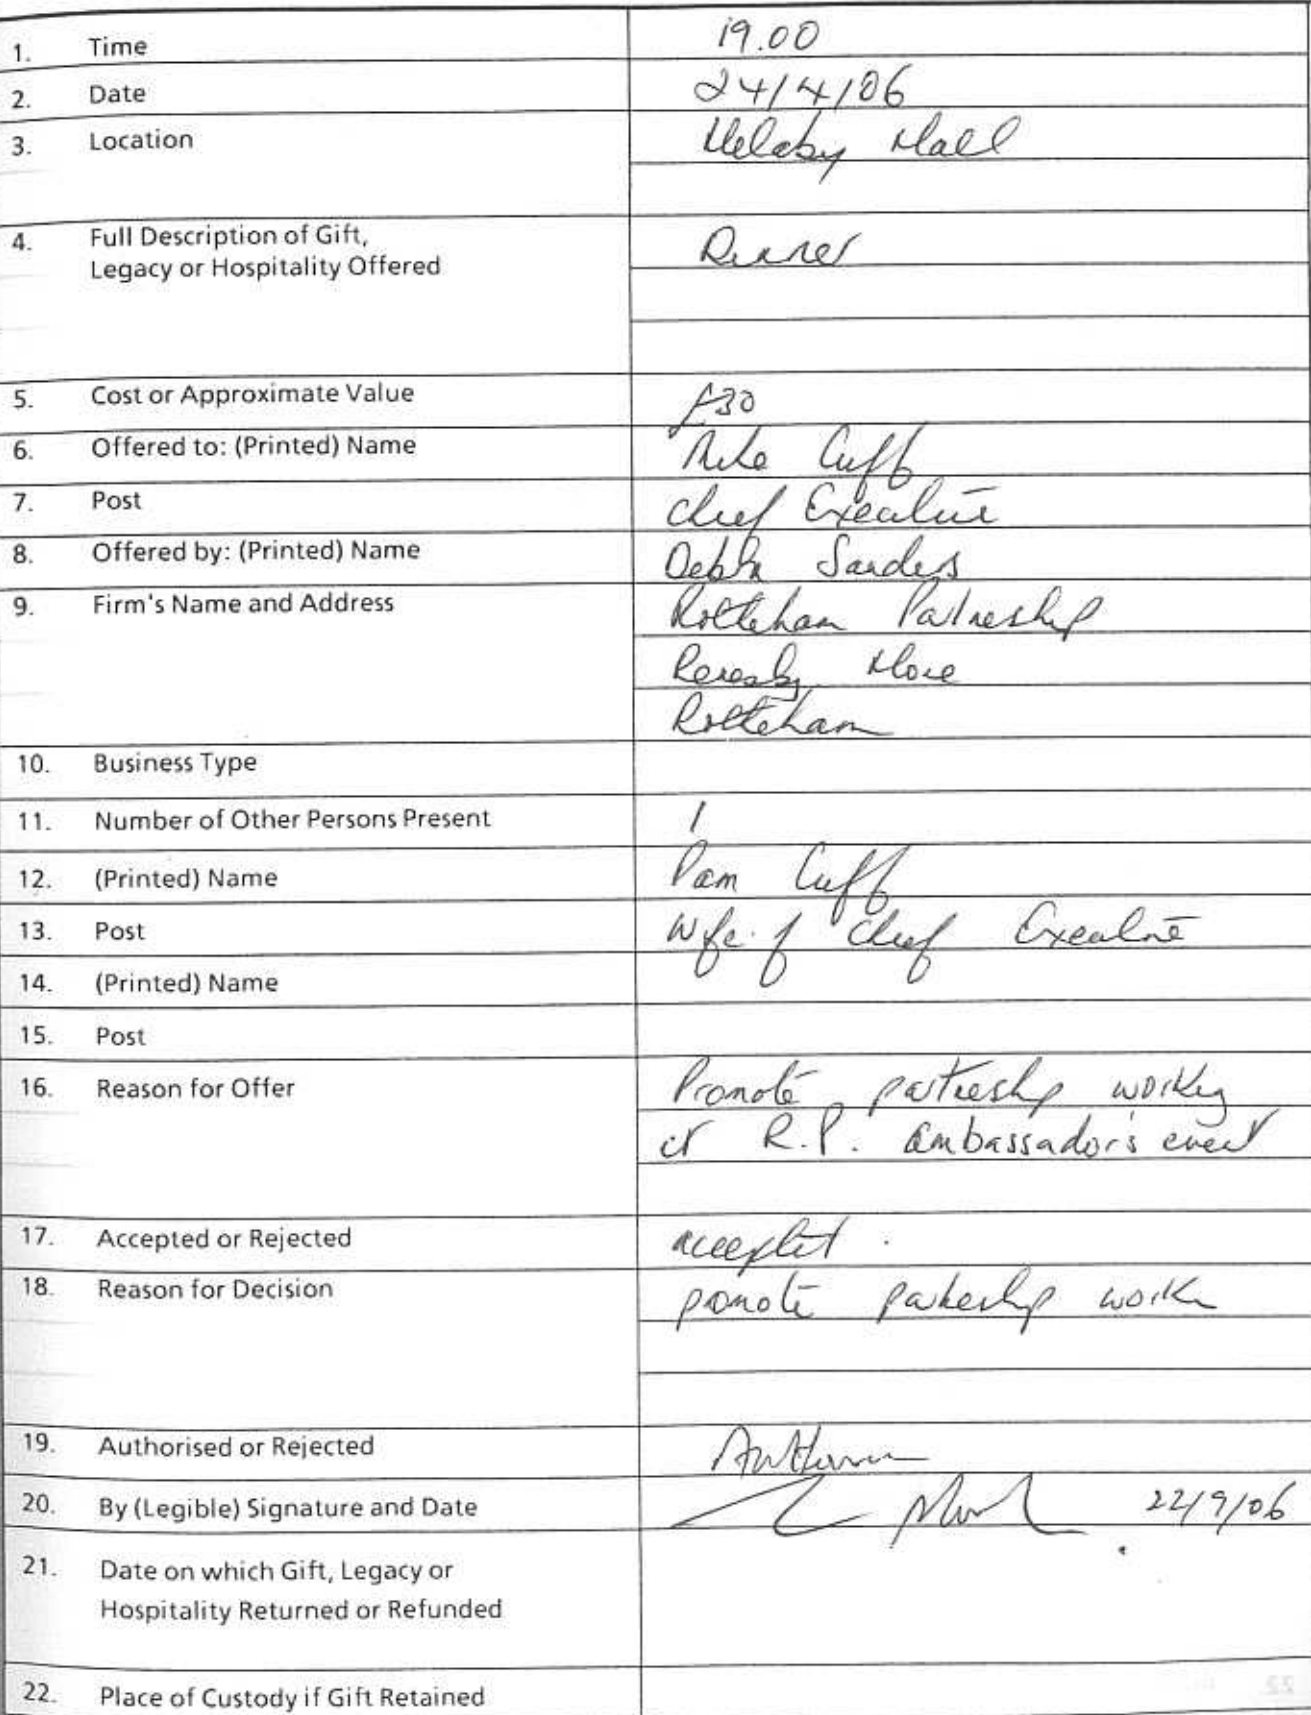 1. Time 19.00
2. Date 24/4/06
3. Location Hellaby Hall
4. Full Description of Gift,
Legacy or Hospitality Offered Dinner
5. Cost or Approximate Value £30
6. Offered to: (Printed) Name Mike Cuff
7. Post Chief Executive
8. Offered by: (Printed) Name Debbi Sanders
9. Firm's Name and Address Rotherham Partnership
Reresby House
Rotherham
10. Business Type
11. Number of Other Persons Present 1
12. (Printed) Name Pam Cuff
13. Post Wife of Chief Executive
14. (Printed) Name
15. Post
16. Reason for Offer Promote partnership working
at R.P. ambassadors event
17. Accepted or Rejected accepted.
18. Reason for Decision promote partnership work
19. Authorised or Rejected
20. By (Legible) Signature and Date 22/9/06
21. Date on which Gift, Legacy or
Hospitality Returned or Refunded
22. Place of Custody if Gift Retained